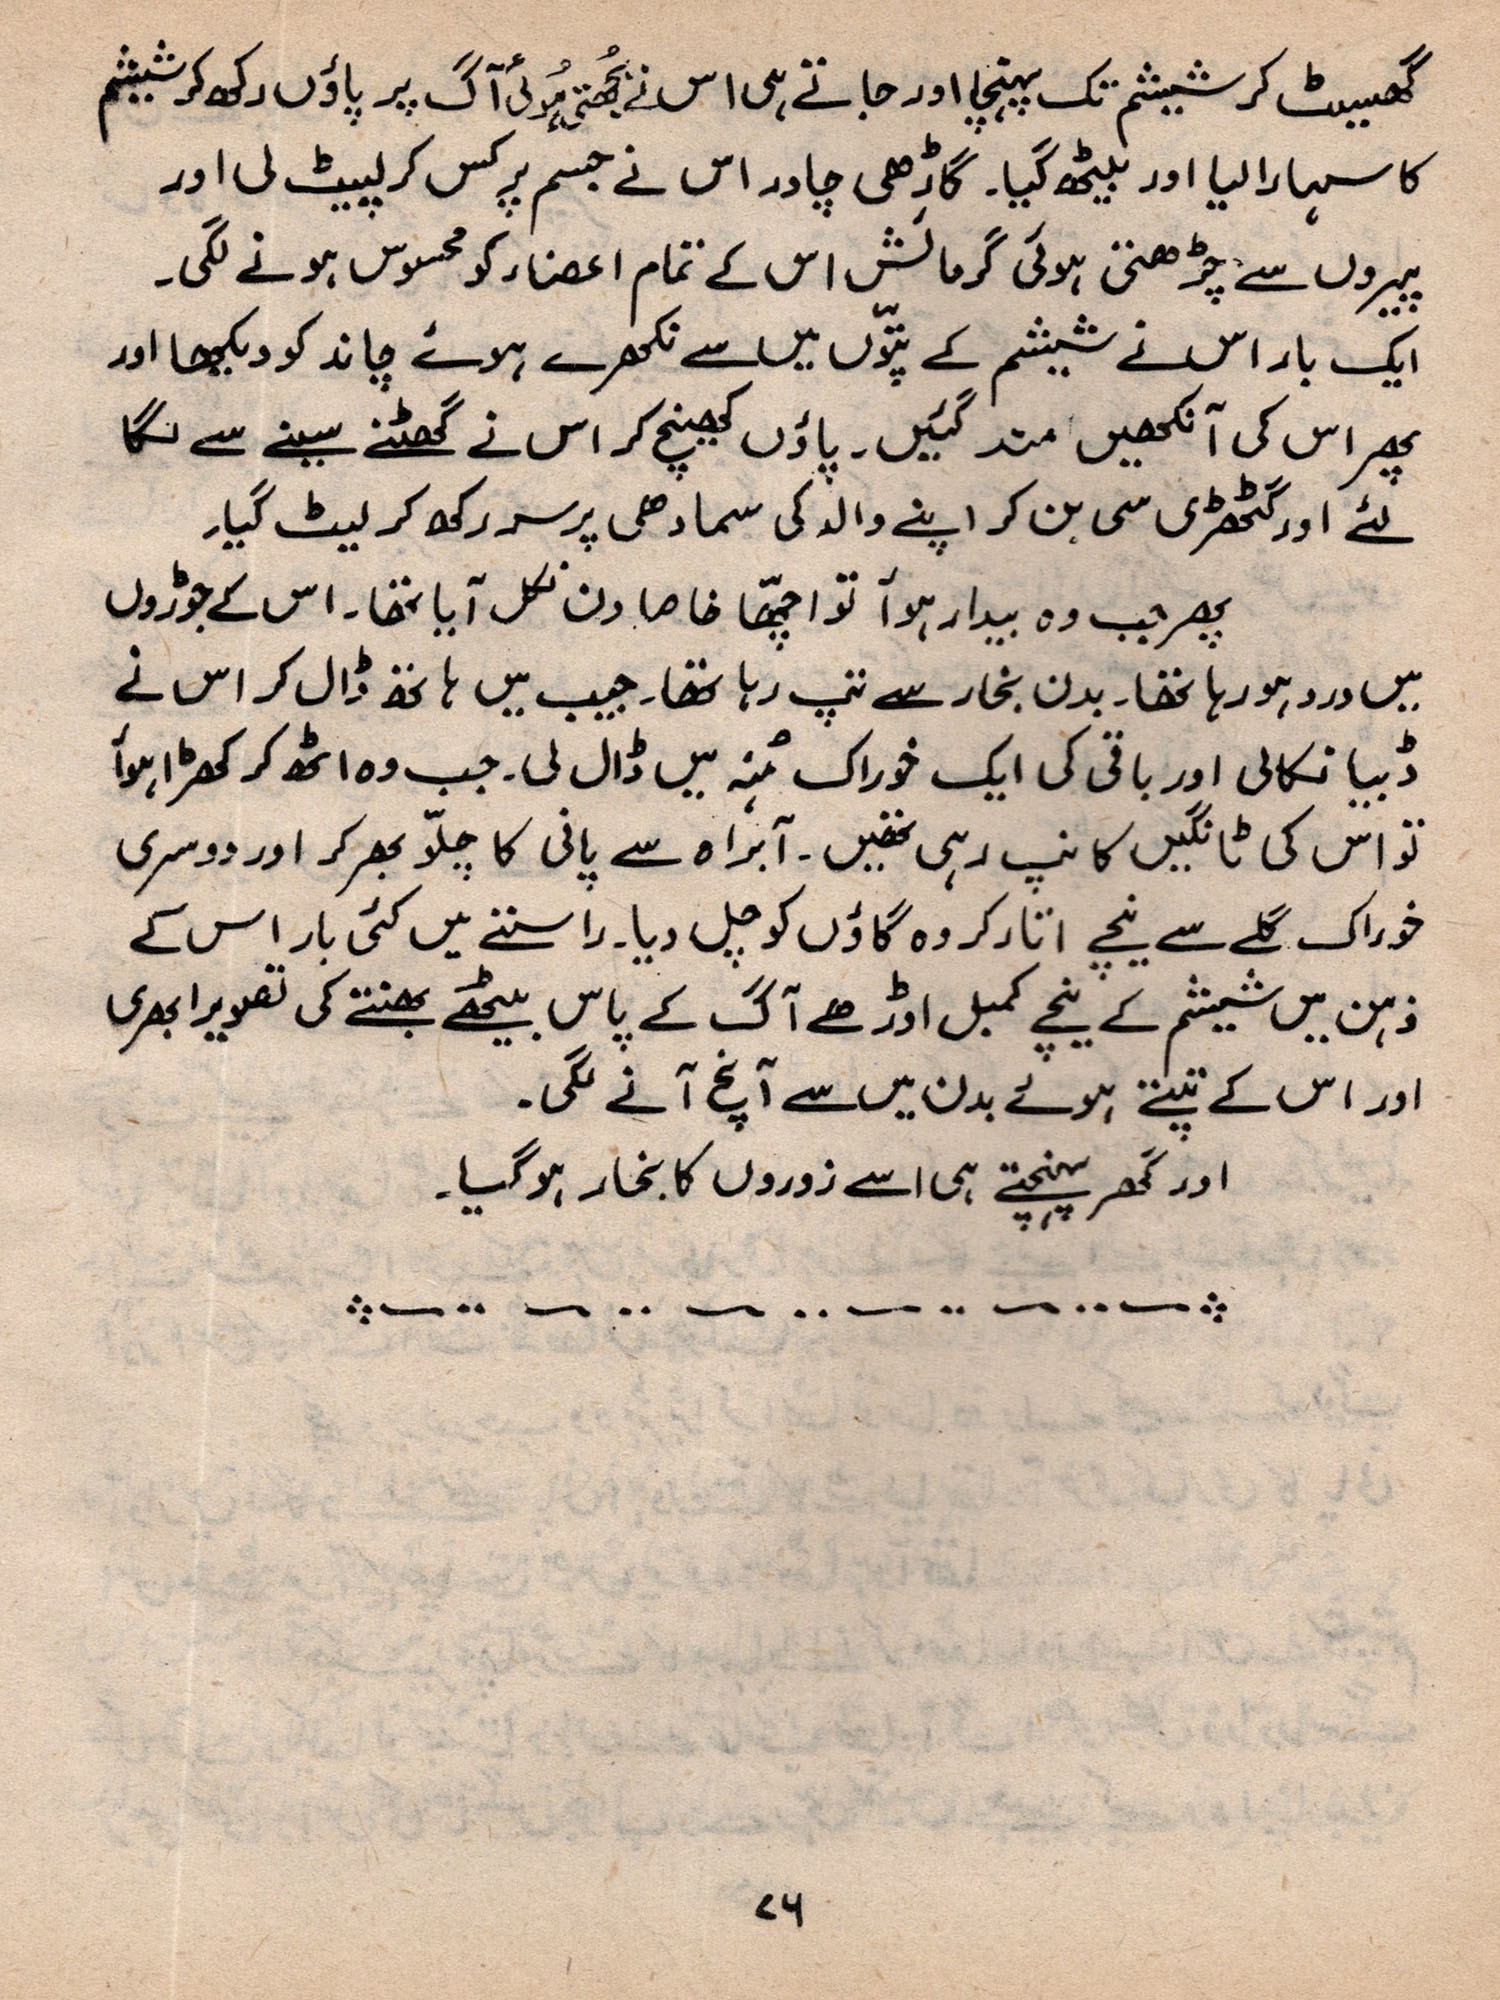 گھسیٹ کر شیشم تک پہنچا اور جاتے ہی اس نے بُجھتی ہُوئی آگ پر پاؤں رکھ کر شیشم
کا سہارا لیا اور بیٹھ گیا۔ گاڑھی چادر اس نے جسم پر کس کر لپیٹ لی اور
پیروں سے چڑھتی ہوئی گرمائش اس کے تمام اعضاء کو محسوس ہونے لگی۔
ایک بار اس نے شیشم کے پتّوں میں سے نکھرے ہوئے چاند کو دیکھا اور
پھر اس کی آنکھیں مند گئیں۔ پاؤں کھینچ کر اس نے گھٹنے سینے سے لگا
لئے اور گٹھڑی سی بن کر اپنے والد کی سمادھی پر سر رکھ کر لیٹ گیا۔
پھر جب وہ بیدار ہوأ تو اچھّا خاصا دن نکل آیا تھا۔ اس کے جوڑوں
میں درد ہو رہا تھا۔ بدن بخار سے تپ رہا تھا۔ جیب میں ہاتھ ڈال کر اس نے
ڈبیا نکالی اور باقی کی ایک خوراک مُنہ میں ڈال لی۔ جب وہ اٹھ کر کھڑا ہوأ
تو اس کی ٹانگیں کانپ رہی تھیں۔ آبراہ سے پانی کا چلّو بھر کر اور دوسری
خوراک گلے سے نیچے اتار کر وہ گاؤں کو چل دیا۔ راستے میں کئی بار اس کے
ذہن میں شیشم کے نیچے کمبل اوڑھے آگ کے پاس بیٹھے بھنتے کی تصویر ابھری
اور اس کے تپتے ہوئے بدن میں سے آنچ آنے لگی۔
اور گھر پہنچتے ہی اسے زوروں کا بخار ہو گیا۔
۲۶